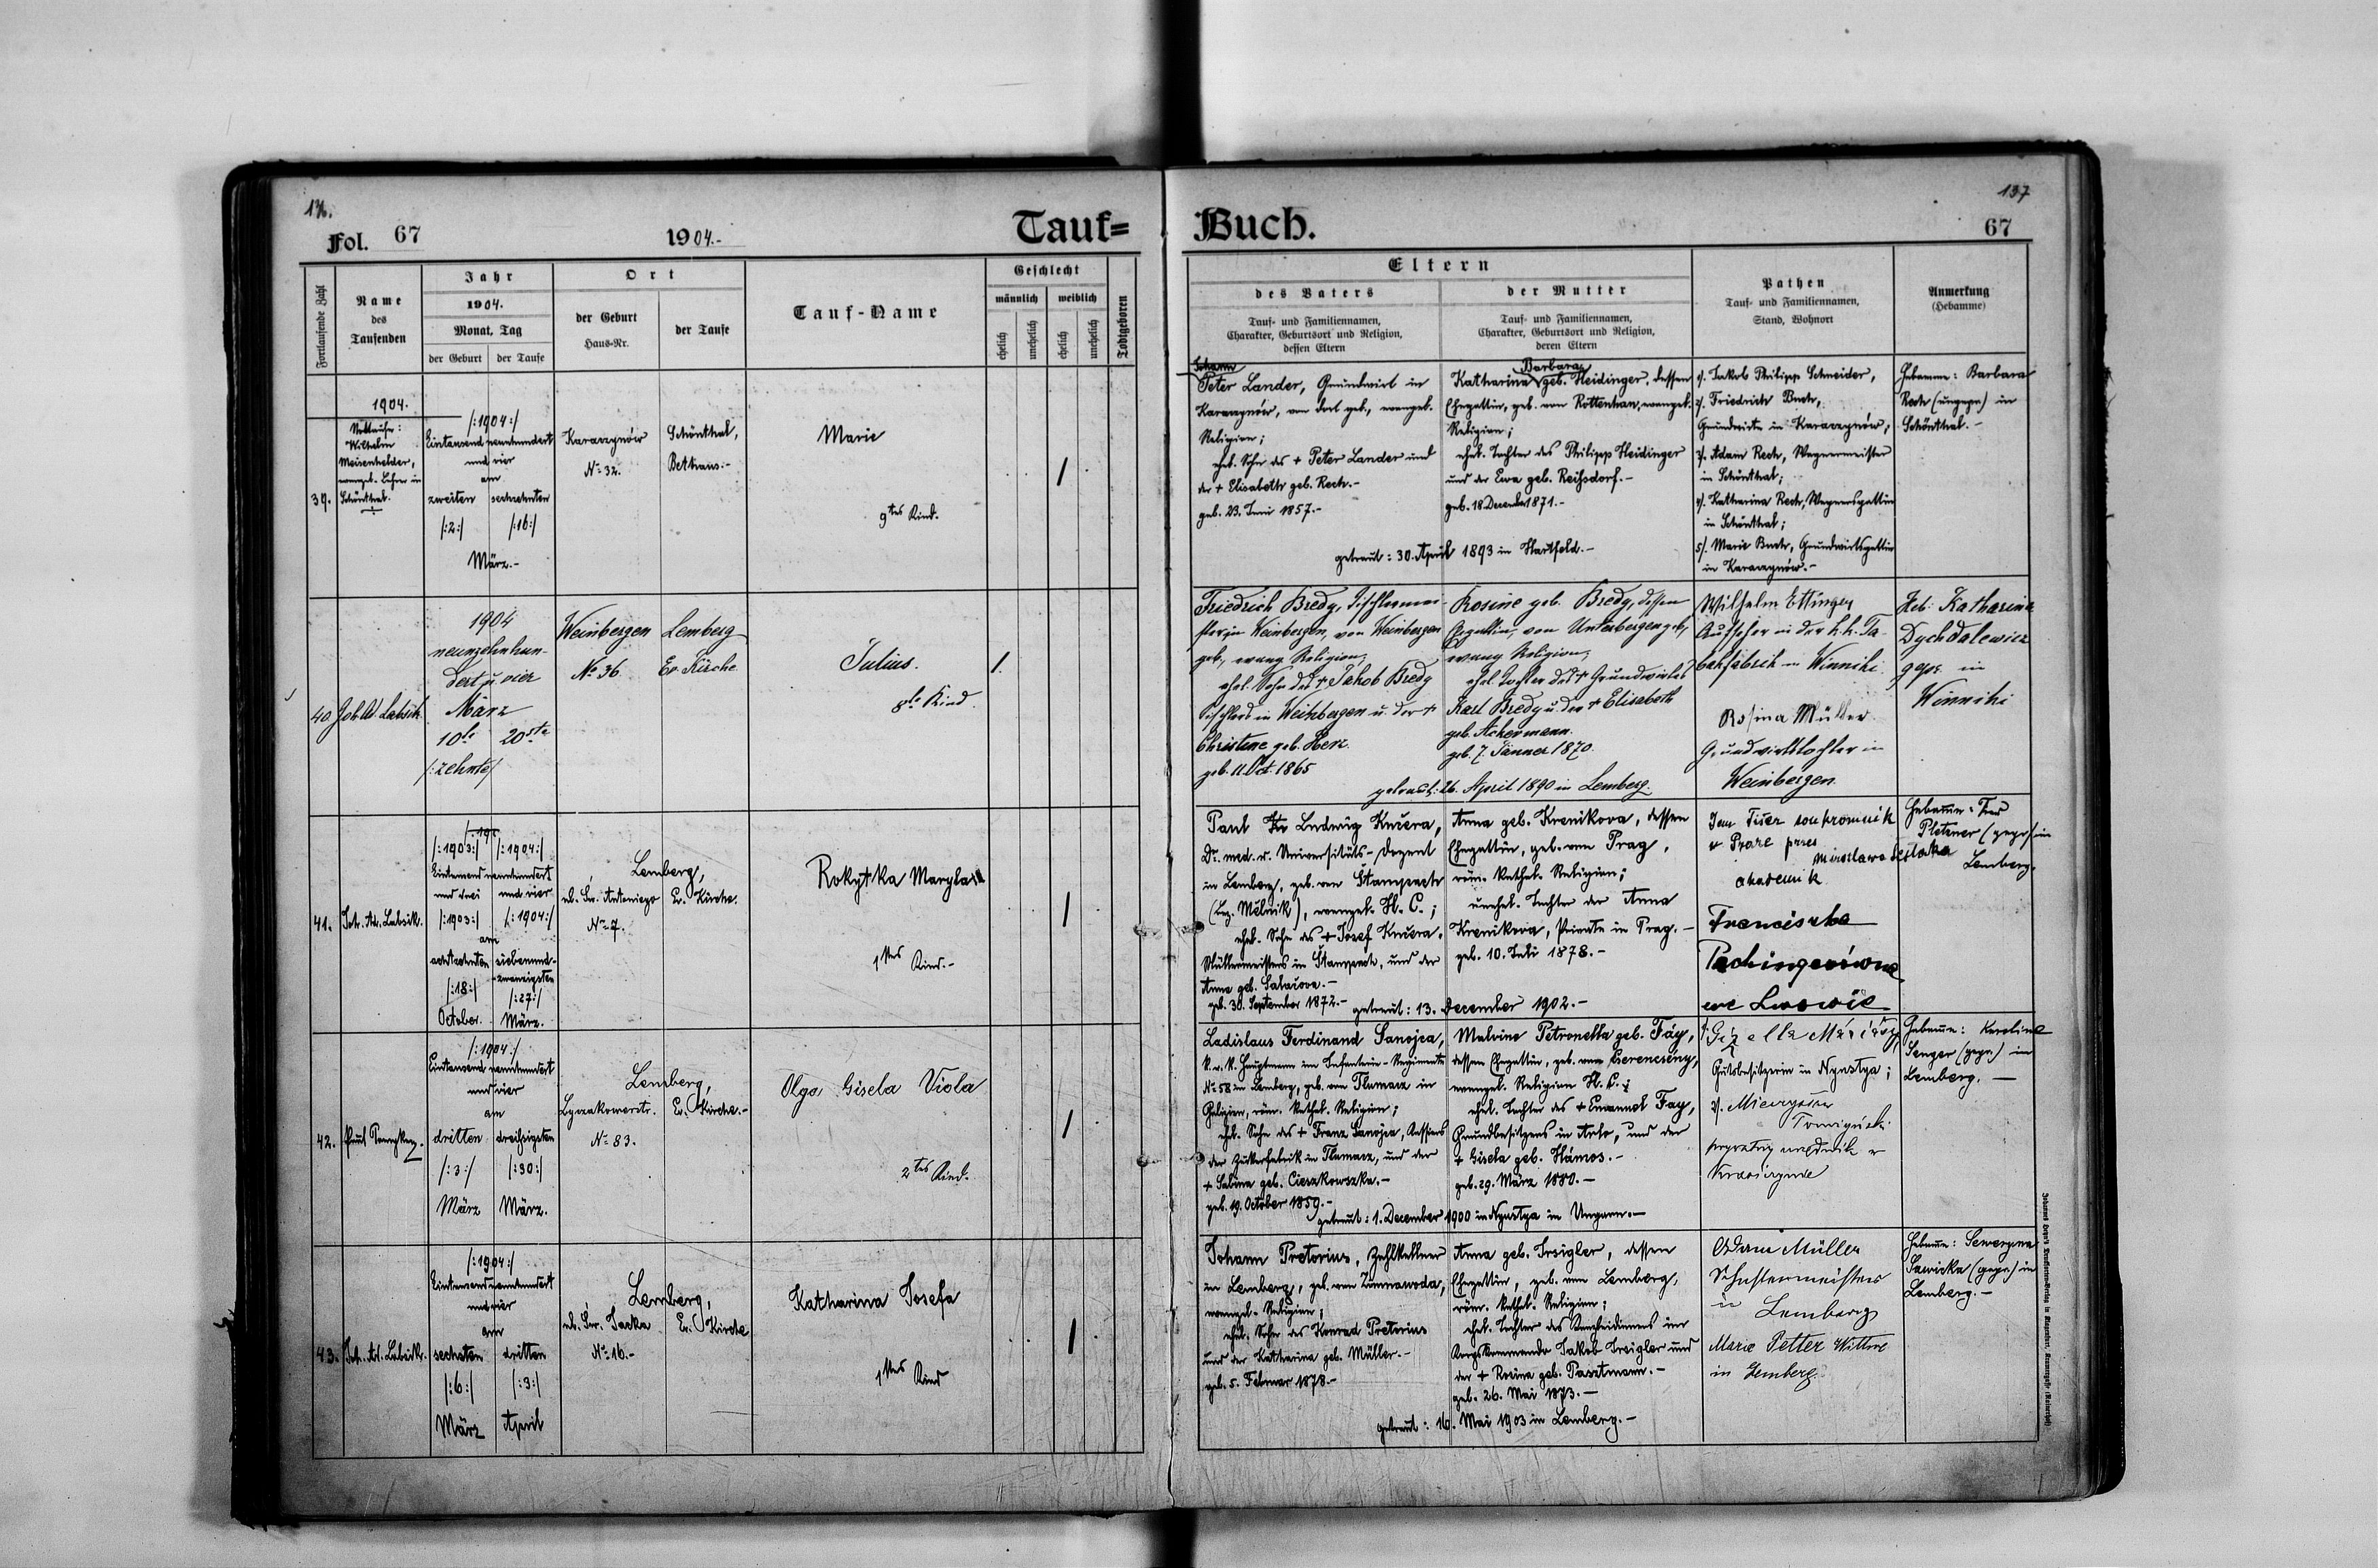 136.
Fol. 67
1904.-
Tauf=
Buch.
137
67
Fortlaufende Zahl
Name
des
Taufenden
Jahr
1904.
Monat, Tag
der Geburt
der Taufe
Ort
der Geburt
Haus-Nr.
der Taufe
Tauf-Name
Geschlecht
männlich
weiblich
ehelich
unehelich
ehelich
unehelich
Todtgeboren
Eltern
des Vaters
Tauf- und Familiennamen,
Charakter, Geburtsort und Religion,
dessen Eltern
der Mutter
Tauf- und Familiennamen,
Charakter, Geburtsort und Religion,
deren Eltern
Pathen
Tauf- und Familiennamen,
Stand, Wohnort
Anmerkung
(Hebamme)
39.
1904.
Nottaufe:
Wilhelm
Meisenhelder,
evangel. Lehrer in
Schönthal.
/:1904:/
Eintausend neunhundert
und vier
am
zweiten sechzehnten
/:2:/ /:16:/
März.-
Karaczynów
No 32.
Schönthal,
Bethaus.-
Marie
9tes Kind.
Johann
Peter Lander, Grundwirt in
Karaczynów, von dort geb., evangel.
Religion;
ehel. Sohn des + Peter Lander und
der + Elisabeth geb. Rech.-
geb. 23. Juni 1857.-
Barbara
Katharina geb. Heidinger, dessen
Ehegattin, geb. von Rottenhan, evangel.
Religion;
ehel. Tochter des Philipp Heidinger
und der Ewa geb. Reihsdorf.-
geb. 18 December 1871.-
getraut: 30. April 1893 in Hartfeld.-
1/. Jakob Philipp Schneider,
2/. Friedrich Buch,
Grundwirte in Karaczynów;
3/. Adam Rech, Wagnermeister
in Schönthal;
4/. Katharina Rech, Wagnersgattin
in Schönthal;
5/. Marie Buch, Grundwirtsgattin
in Karaczynów.-
Hebamme: Barbara
Rech (ungepr.) in
Schönthal.-
40
1904
neunzehnhun-
dert u. vier
März
10te 20ste
/:zehnte/
Weinbergen
No 36
Lemberg
Ev. Kirche
Julius.
8te Kind.
1.
Friedrich Bredy, Tischlermei-
ster in Weinbergen, von Weinbergen
geb., evang. Religion,
ehel. Sohn des + Jakob Bredy
Tischlers in Weinbergen u. der +
Christine geb. Herz.
geb. 11. Oct. 1865
Rosine geb. Bredy, dessen
Ehegattin, von Unterbergen geb.,
evang. Religion;
ehel. Tochter des + Grundwirtes
Karl Bredy u. der + Elisabeth
geb. Ackermann.
geb. 7. Jänner 1870.
getraut: 26. April 1890 in Lemberg.
Wilhelm Ettinger
Aufseher in der k.k. Ta-
bakfabrik in Winniki.
Rosina Müller.
Grundwirtstochter in
Weinbergen.
Heb. Katharina
Dychdalewicz
gepr. in
Winniki
41.
/:1903:/ /:1904:/
Eintausend neunhundert
und drei und vier
/:1903:/ /:1904:/
am
achtzehnten siebenund-
zwanzigsten
/:18:/ /:27:/
October. März.
Lemberg,
ul. Św. Antoniego Ev. Kirche.
No 7.
Rokytka Maryla
1stes Kind.-
Paul Ludwig Kučera,
Dr. med. u. Universitäts-Dozent
in Lemberg, geb. von Štampach
(Bez. Mělník), evangel. H. C.;
ehel. Sohn des + Josef Kučera,
Müllermeisters in Štampach, und der
Anna geb. Salačova.-
geb. 30. September 1872.-
Anna geb. Krenikova, dessen
Ehegattin, geb. von Prag,
röm. kathol. Religion;
unehel. Tochter der Anna
Krenikova, Private in Prag.-
geb. 10. Juli 1878.-
getraut: 13. December 1902.-
akademik
Franciszka
we Lwowie
Hebamme: Frau
Pletzner (gepr.) in
Lemberg.
42.
/:1904:/
Eintausend neunhundert
und vier
am
dritten dreihsigsten
/:3:/ /:30:/
März März.
Lemberg,
Lyczakowerstr. Ev. Kirche.-
No 83.
Olga Gisela Viola
2tes Kind.
Ladislaus Ferdinand Sanojca,
k. u. k. Hauptmann im Infanterie-Regimente
No 58 in Lemberg, geb. von Tlumacz in
Galizien, röm. kathol. Religion;
ehel. Sohn des + Franz Sanojca, Cassiers
der Zuckerfabrik in Tlumacz, und der
+ Sabina geb. Cieszkowszka.-
geb. 19. October 1859.-
Malvine Petronella geb. Fáy,
dessen Ehegattin, geb. von Gerencsény,
evangel. Religion H. C.;
ehel. Tochter des + Emanuel Fay,
Grundbesitzers in Anto, und der
+ Gisela geb. Hámos.-
geb. 29. März 1880.-
getraut: 1. December 1900 in Nyustya in Ungarn.-
Gutsbesitzerin in Nyustya;
2/.
Hebamme: Karoline
Senger (gepr.) in
Lemberg.-
43.
/:1904:/
Eintausend neunhundert
und vier
am
sechsten dritten
/:6:/ /:3:/
März April
Lemberg,
ul. Św. Jacka Ev. Kirche
No 16.-
Katharina Josefa
1stes Kind
Johann Pretorius, Zahlkellner
in Lemberg, geb. von Zimnawoda,
evangel. Religion;
ehel. Sohn des Konrad Pretorius
und der Katharina geb. Müller.-
geb. 5. Februar 1878.-
Anna geb. Irsigler, dessen
Ehegattin, geb. von Lemberg,
röm. kathol. Religion;
ehel. Tochter des Kanzleidieners im
Korpskommando Jakob Irsigler und
der + Rosina geb. Pasztmann.-
geb. 26. Mai 1873.-
getraut: 16. Mai 1903 in Lemberg.-
Adam Müller
Schustermeister
in Lemberg
Marie Petter Witwe
in Lemberg.
Hebamme: Seweryna
Sawicka (gepr.) in
Lemberg.-